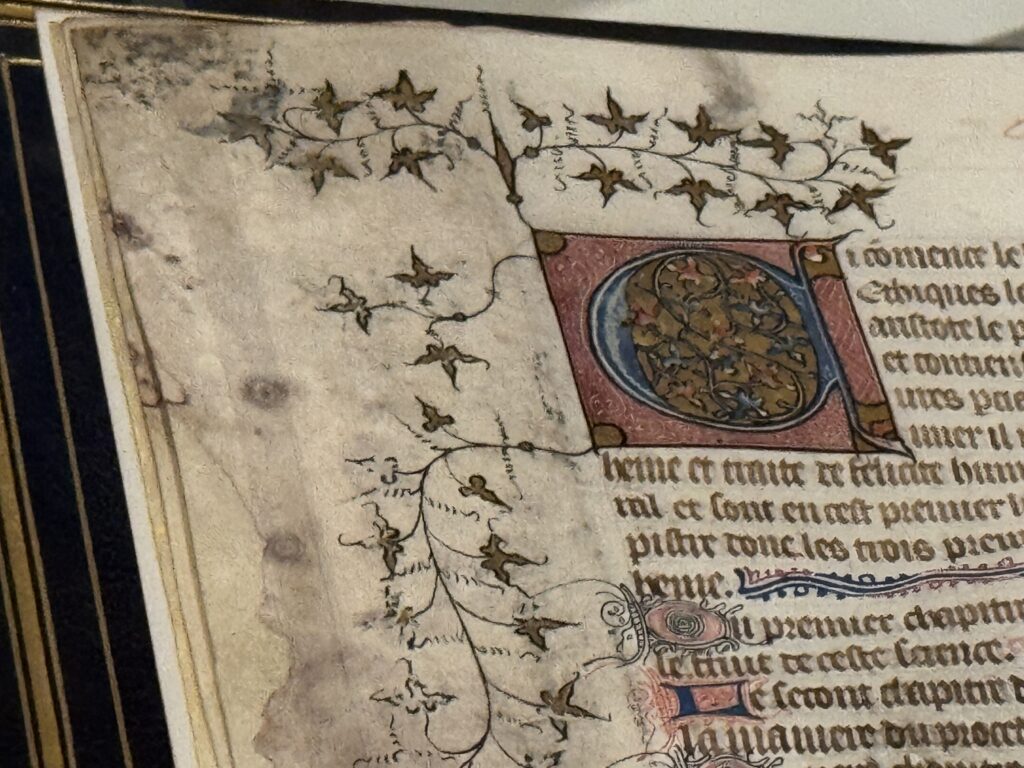 Ci cōmence le
Ethiques le
aristote le p
et contien
ures
mier il
heme et traite de felicite hum
ral et sont en cest premier l
pistre donc les trois prem
heme.
Ou premier chapitre
le titre de ceste science.
Le secont chapitre d
la maniere du proces